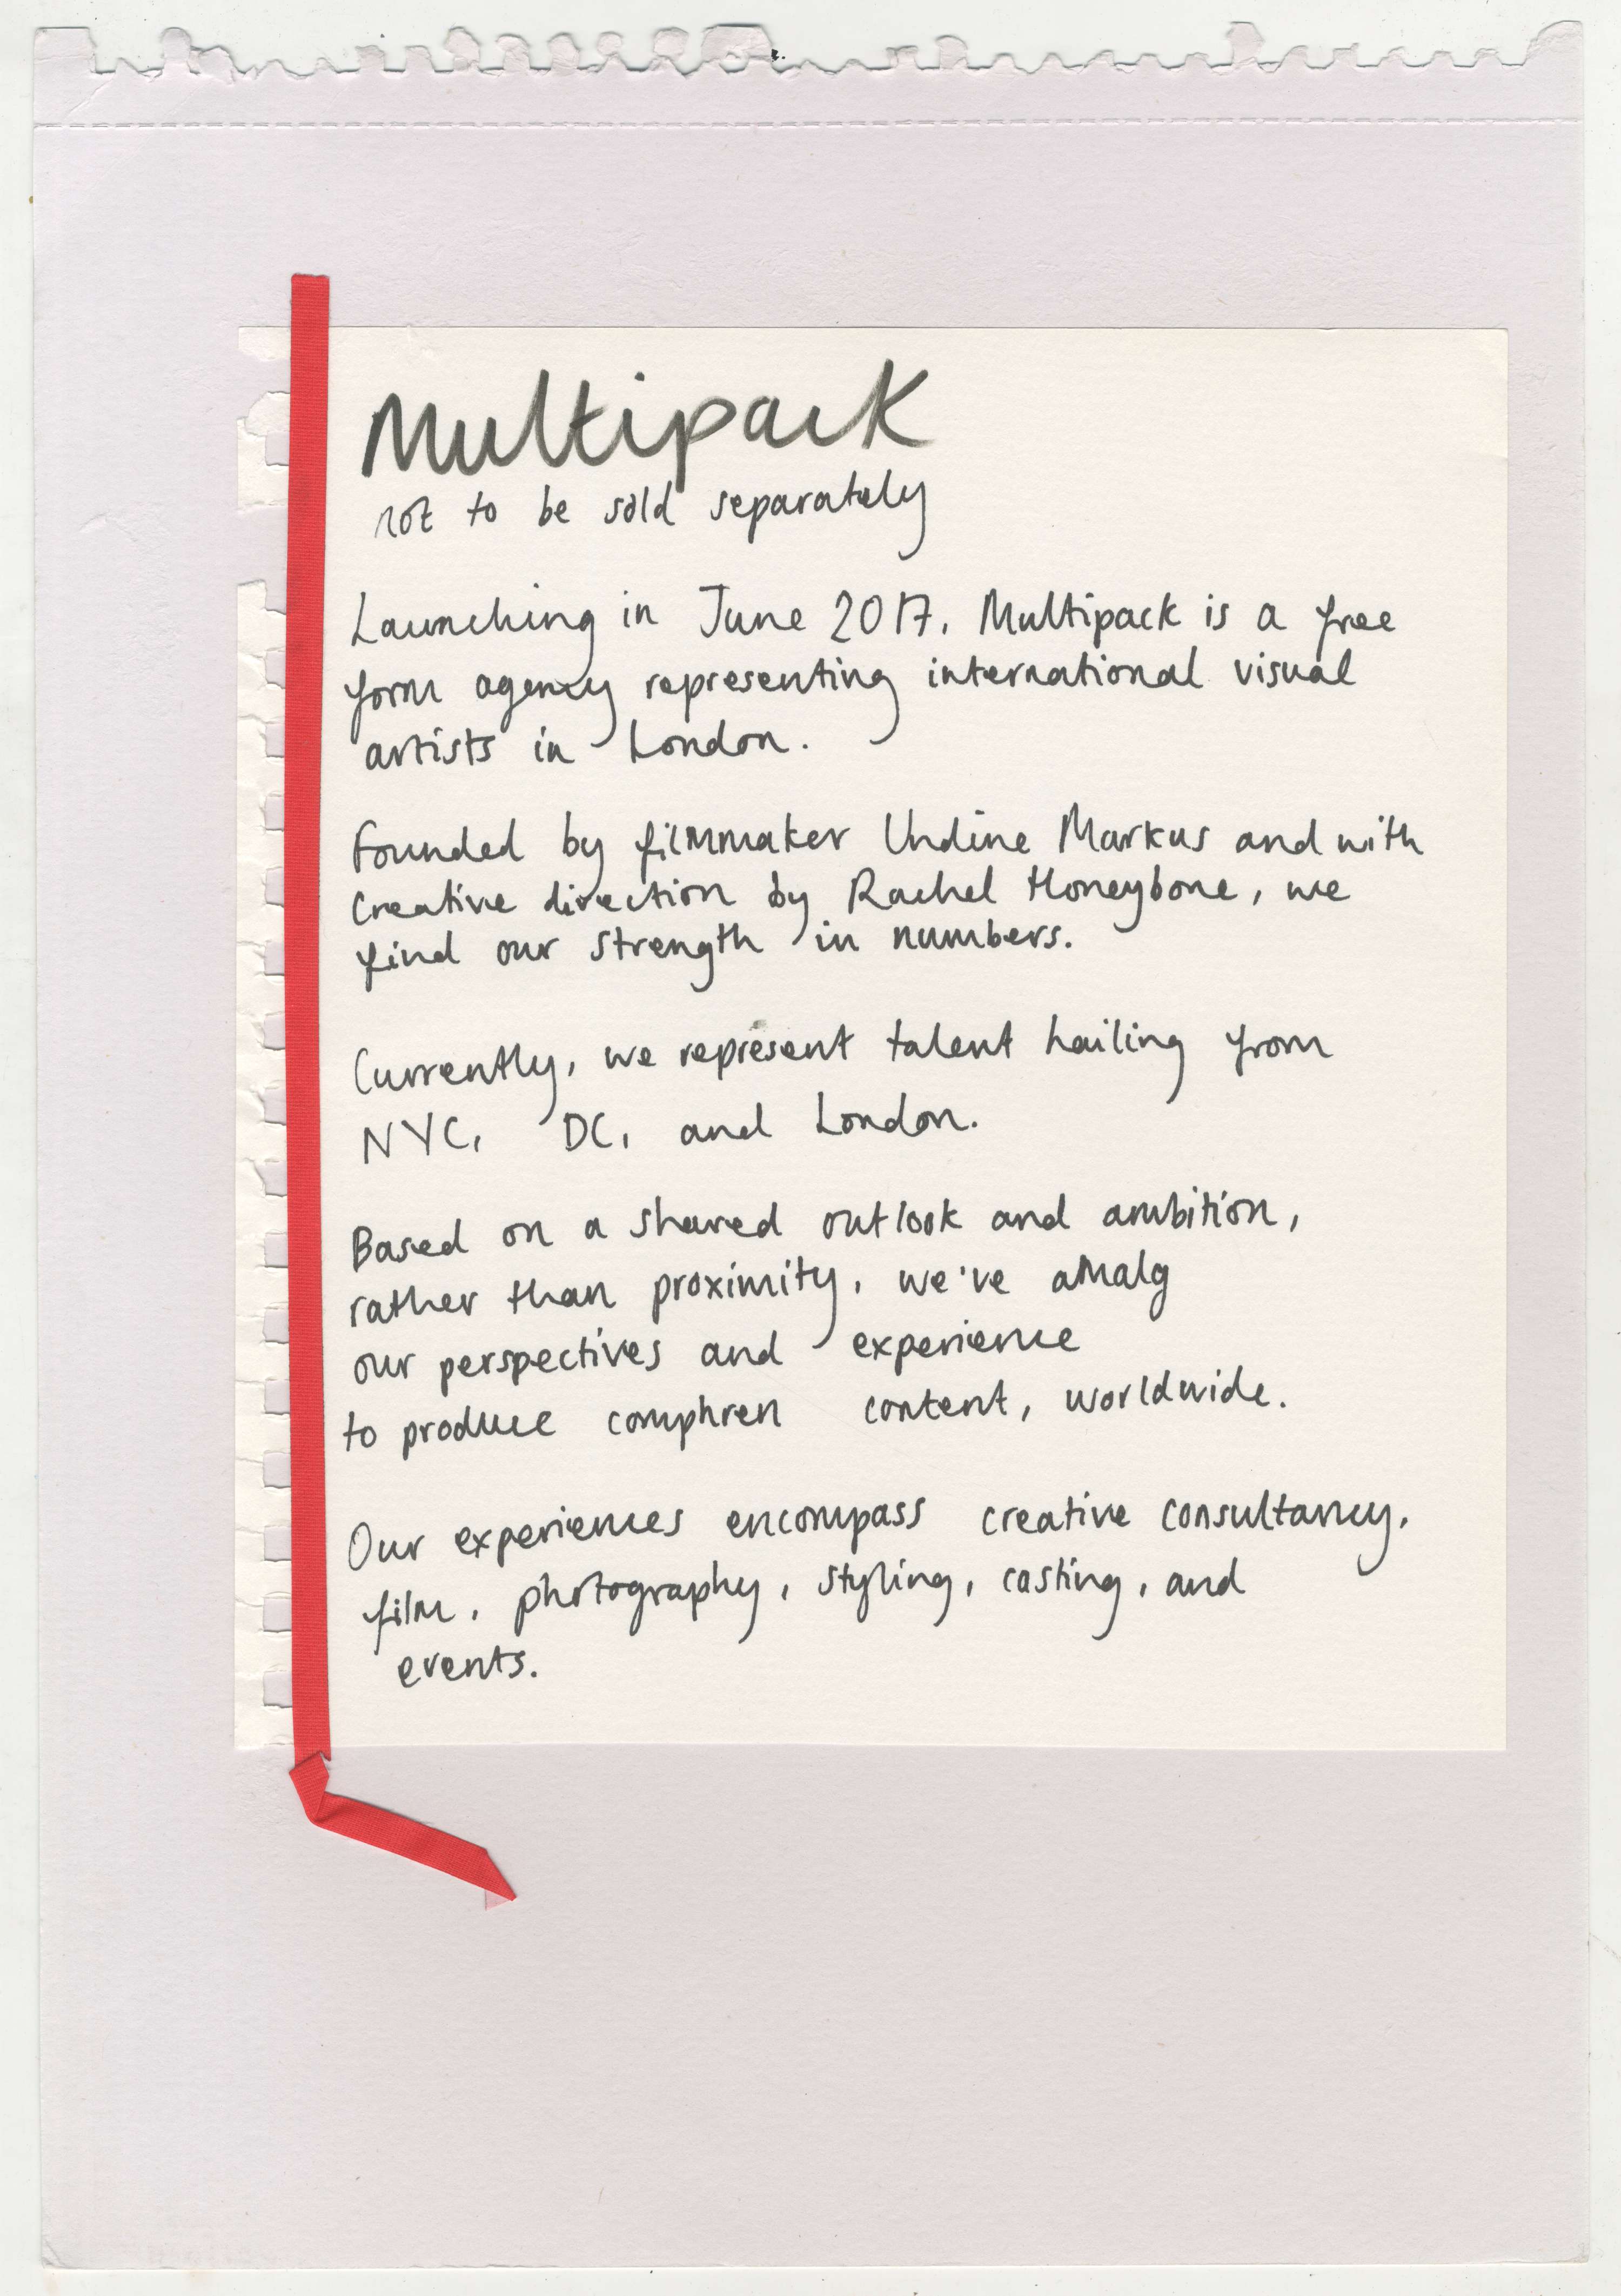 Multipack
not to be sold separately
Launching in June 2017, Multipack is a free
form agency representing international visual
artists in London.
Founded by filmmaker Undine Markus and with
creative direction by Rachel Honeybone, we
find our strength in numbers.
Currently, we represent talent hailing from
NYC, DC, and London.
Based on a shared outlook and ambition,
rather than proximity, we've amalg
our perspectives and experience
to produce comphren content, worldwide.
Our experiences encompass creative consultancy,
film, photography, styling, casting, and
events.